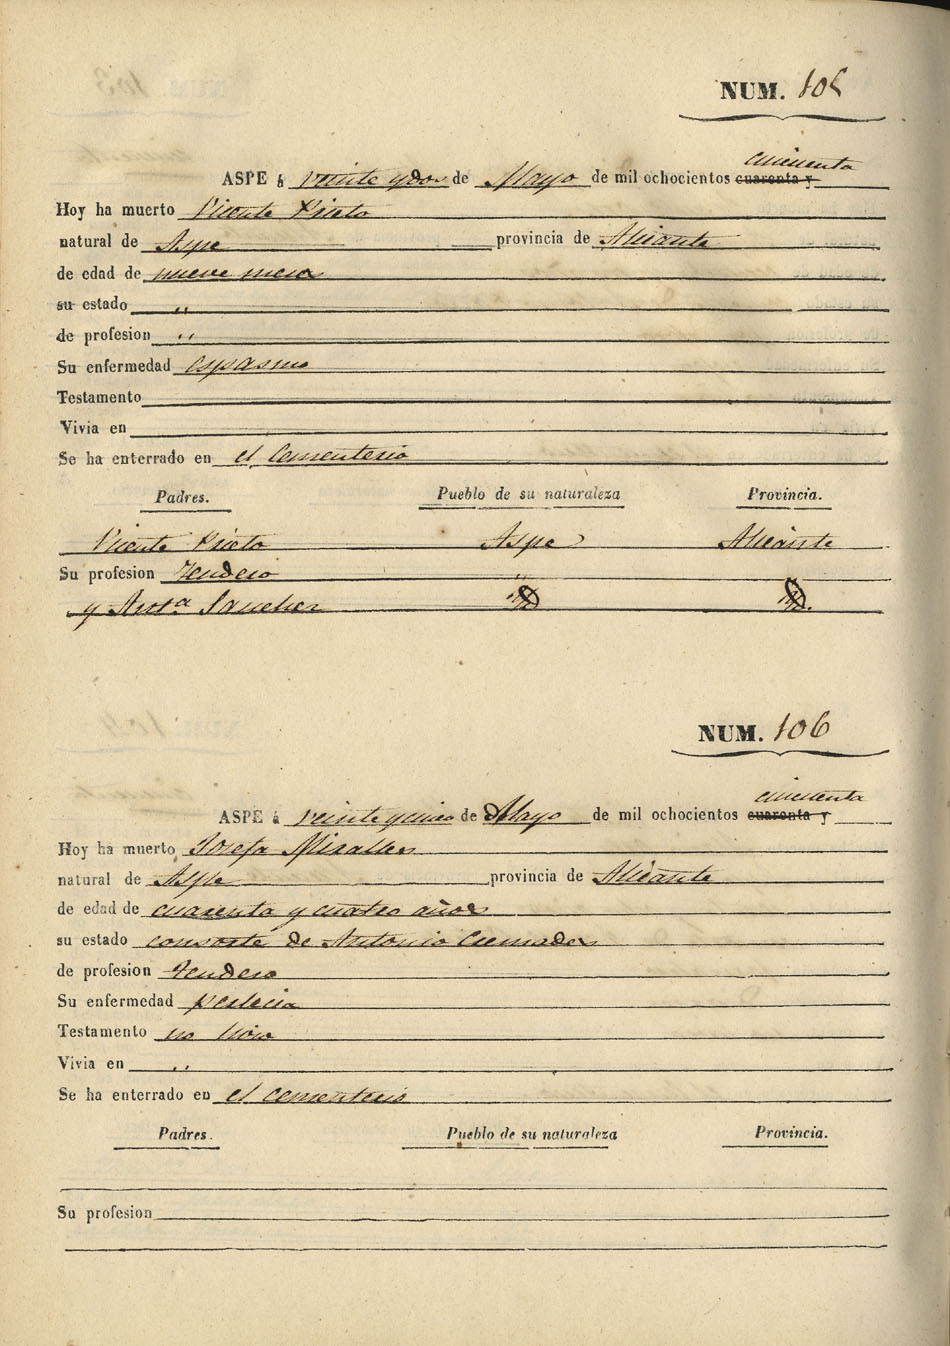 NUM. 105
cincuenta
ASPE á veinte y dos de Mayo de mil ochocientos cuarenta y
Hoy ha muerto Vicente Prieto
natural de Aspe provincia de Alicante
de edad de nueve meses
su estado "
de profesion "
Su enfermedad espasmo
Testamento
Vivia en
Se ha enterrado en el Cementerio
Padres. Pueblo de su naturaleza Provincia.
Vicente Prieto Aspe Alicante
Su profesion Tendero
y Antª Sanchez
NUM. 106
cincuenta
ASPE á veinte y cinco de Mayo de mil ochocientos cuarenta y
Hoy ha muerto Josefa Miralles
natural de Aspe provincia de Alicante
de edad de cuarenta y cuatro años
su estado consorte de Antonio Cremades
de profesion Tendero
Su enfermedad perlecia
Testamento no hizo
Vivia en "
Se ha enterrado en el cementerio
Padres. Pueblo de su naturaleza Provincia.
Su profesion